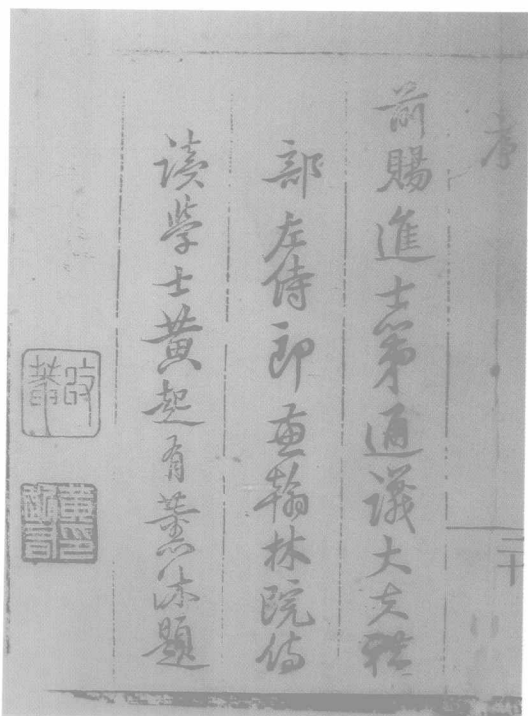 序
二十
前賜進士第通議大夫禮
部左侍郎兼翰林院侍
讀學士黃起有薰沐題
黃起有印